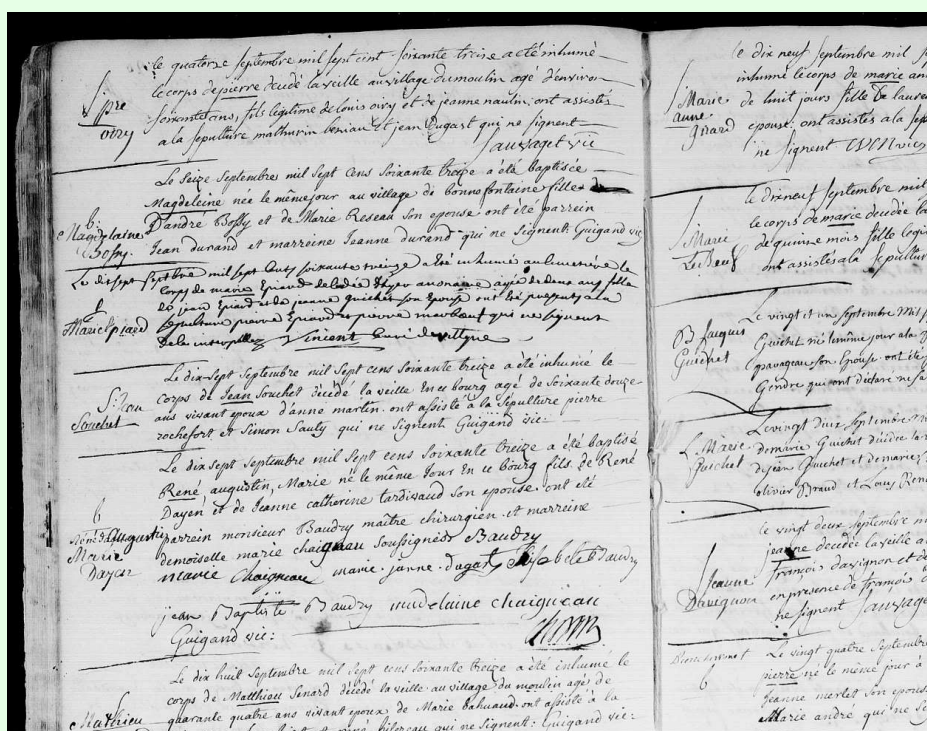 le quatorze septembre mil sept cent soixante treise a été inhumé
le corps de pierre decedé la veille au village du moulin agé d'environ
soixante ans, fils legitime de louis oiry et de jeanne naulin, ont assistés
a la sepulture mathurin et jean Dugast qui ne signent
Sauvaget vic
S pre
oiry
Le Seize Septembre mil Sept Cens Soixante treize a été baptisée
Magdeleine née le même jour au village de bonne fontaine fille
D'andré Bossy et de Marie Reseau Son epouse ont été parrein
Jean durand et marreine Jeanne durand qui ne Signent. Guigand vic
b
Magdelaine
Bossy.
Le dix sept Septbre mil sept Cents soixante treize a été inhumé au Cimetière le
Corps de marie Epiard agée de deux ans fille
de jean Epiard et de jeanne guichet son Epouse ont été presents a la
Sepulture pierre Epiard et pierre qui ne signent
de ce interpellez Vincent
Marie Epiard
Le dix-Sept Septembre mil Sept cens Soixante treize a été inhumé le
Corps de Jean Souchet décédé la veille En ce bourg agé de Soixante douze
ans vivant epoux d'anne martin. ont assisté à la Sépulture pierre
rochefort et Simon Sauly qui ne Signent Guigand vic:
S. Jean
Souchet
Le dix Sept Septembre mil Sept cens Soixante treize a été baptisé
René, augustin, Marie né le même Jour En ce bourg fils de René
Dayen et de Jeanne catherine tardivaud Son epouse. ont été
parrein monsieur Baudry maître chirurgien. et marreine
demoiselle marie chaigneau Soussignés Baudry
b
René augustin
Marie
Dayen
marie Chaigneau marie-janne-dugast Baudry
jean Baptiste Baudry madelaine chaigneau
Guigand vic:
Le dix huit Septembre mil Sept cens Soixante treize a été inhumé le
corps de Matthieu Senard décédé la veille au village du moulin agé de
quarante quatre ans vivant epoux de Marie bahuaud. ont assisté à la
qui ne Signent: Guigand vic:
Mathieu
le dix neuf septembre mil
inhumé le corps de marie
de huit jours fille de
epouse. ont assistés a la
ne signent
S Marie
anne
Girard
le dix neuf septembre mil
le corps de marie decedée
de quinze mois fille
ont assistés a la sepulture
S Marie
Le vingt et un septembre mil
Guichet né le même jour a la
son Epouse ont été
Gendre qui ont déclaré ne
B Jacques
Guichet
Le vingt deux septembre
de marie Guichet décédée la
de jean Guichet et de marie
olivier Braud et Louis
S Marie
Guichet
le vingt deux septembre
jeanne decedée la veille a
françois davignon et de
en presence de françois
ne signent Sauvaget
S Jeanne
Davignon
Le vingt quatre Septembre
pierre né le même jour à
Jeanne merlet son epouse
Marie andré qui ne
b